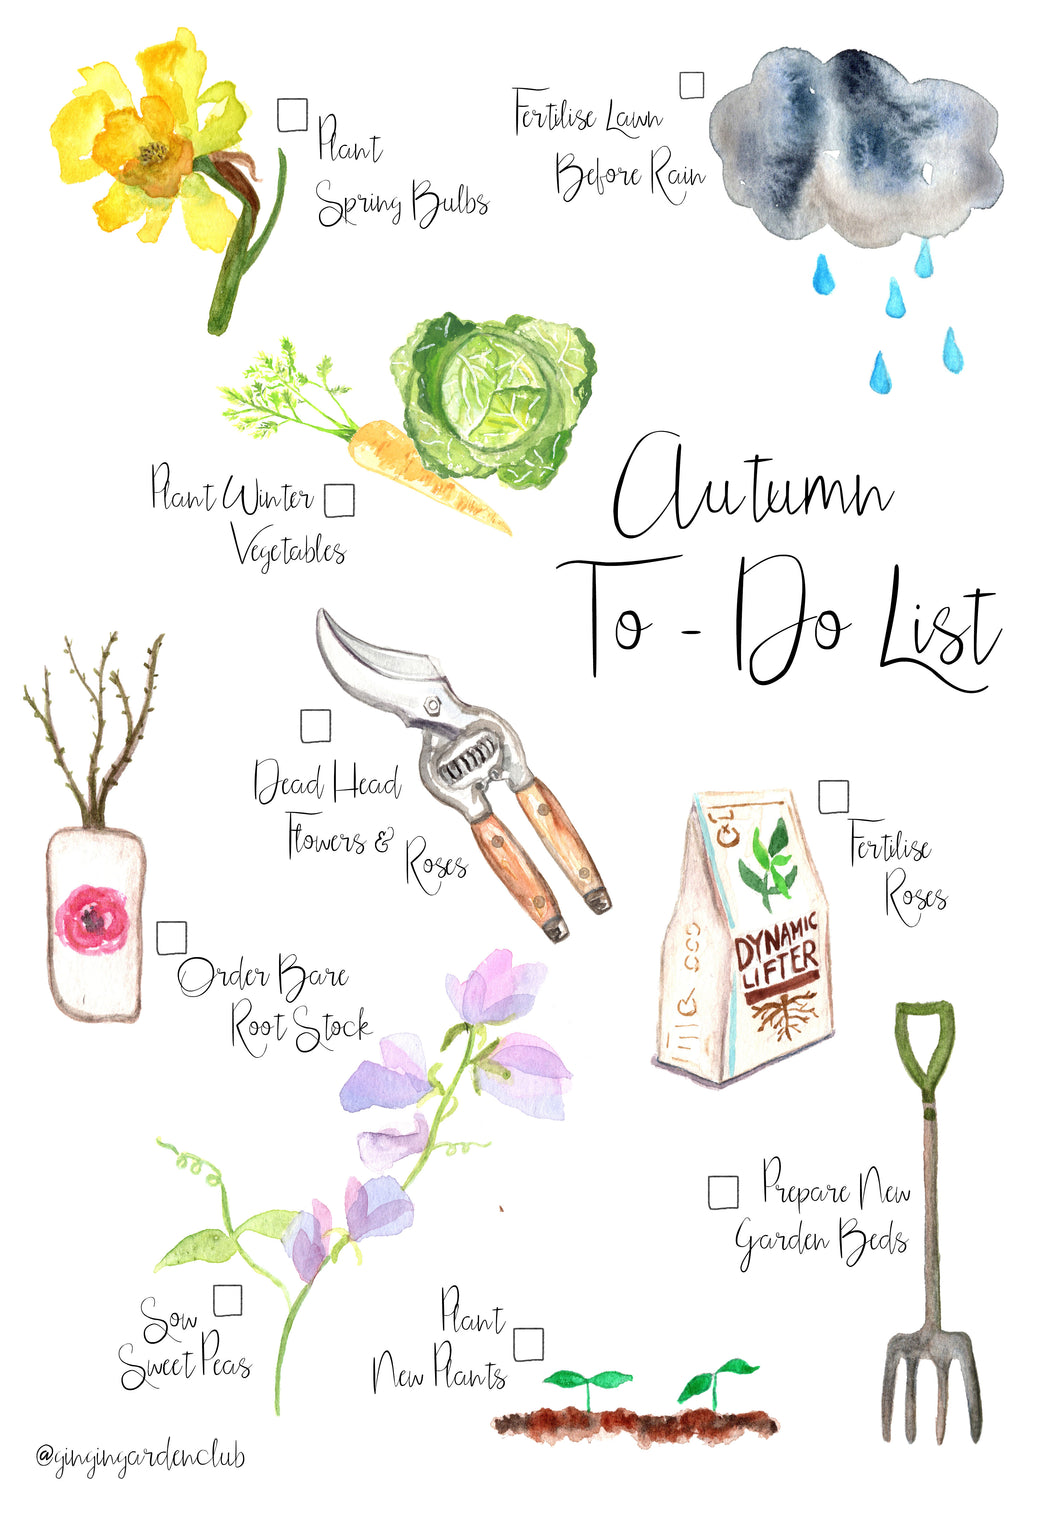 Plant
Spring Bulbs
Fertilise Lawn
Before Rain
Plant Winter
Vegetables
Autumn
To - Do List
Dead Head
Flowers &
Roses
Fertilise
Roses
DYNAMIC
LiFTER
Order Bare
Root Stock
Prepare New
Garden Beds
Sow
Sweet Peas
Plant
New Plants
@gingingardenclub